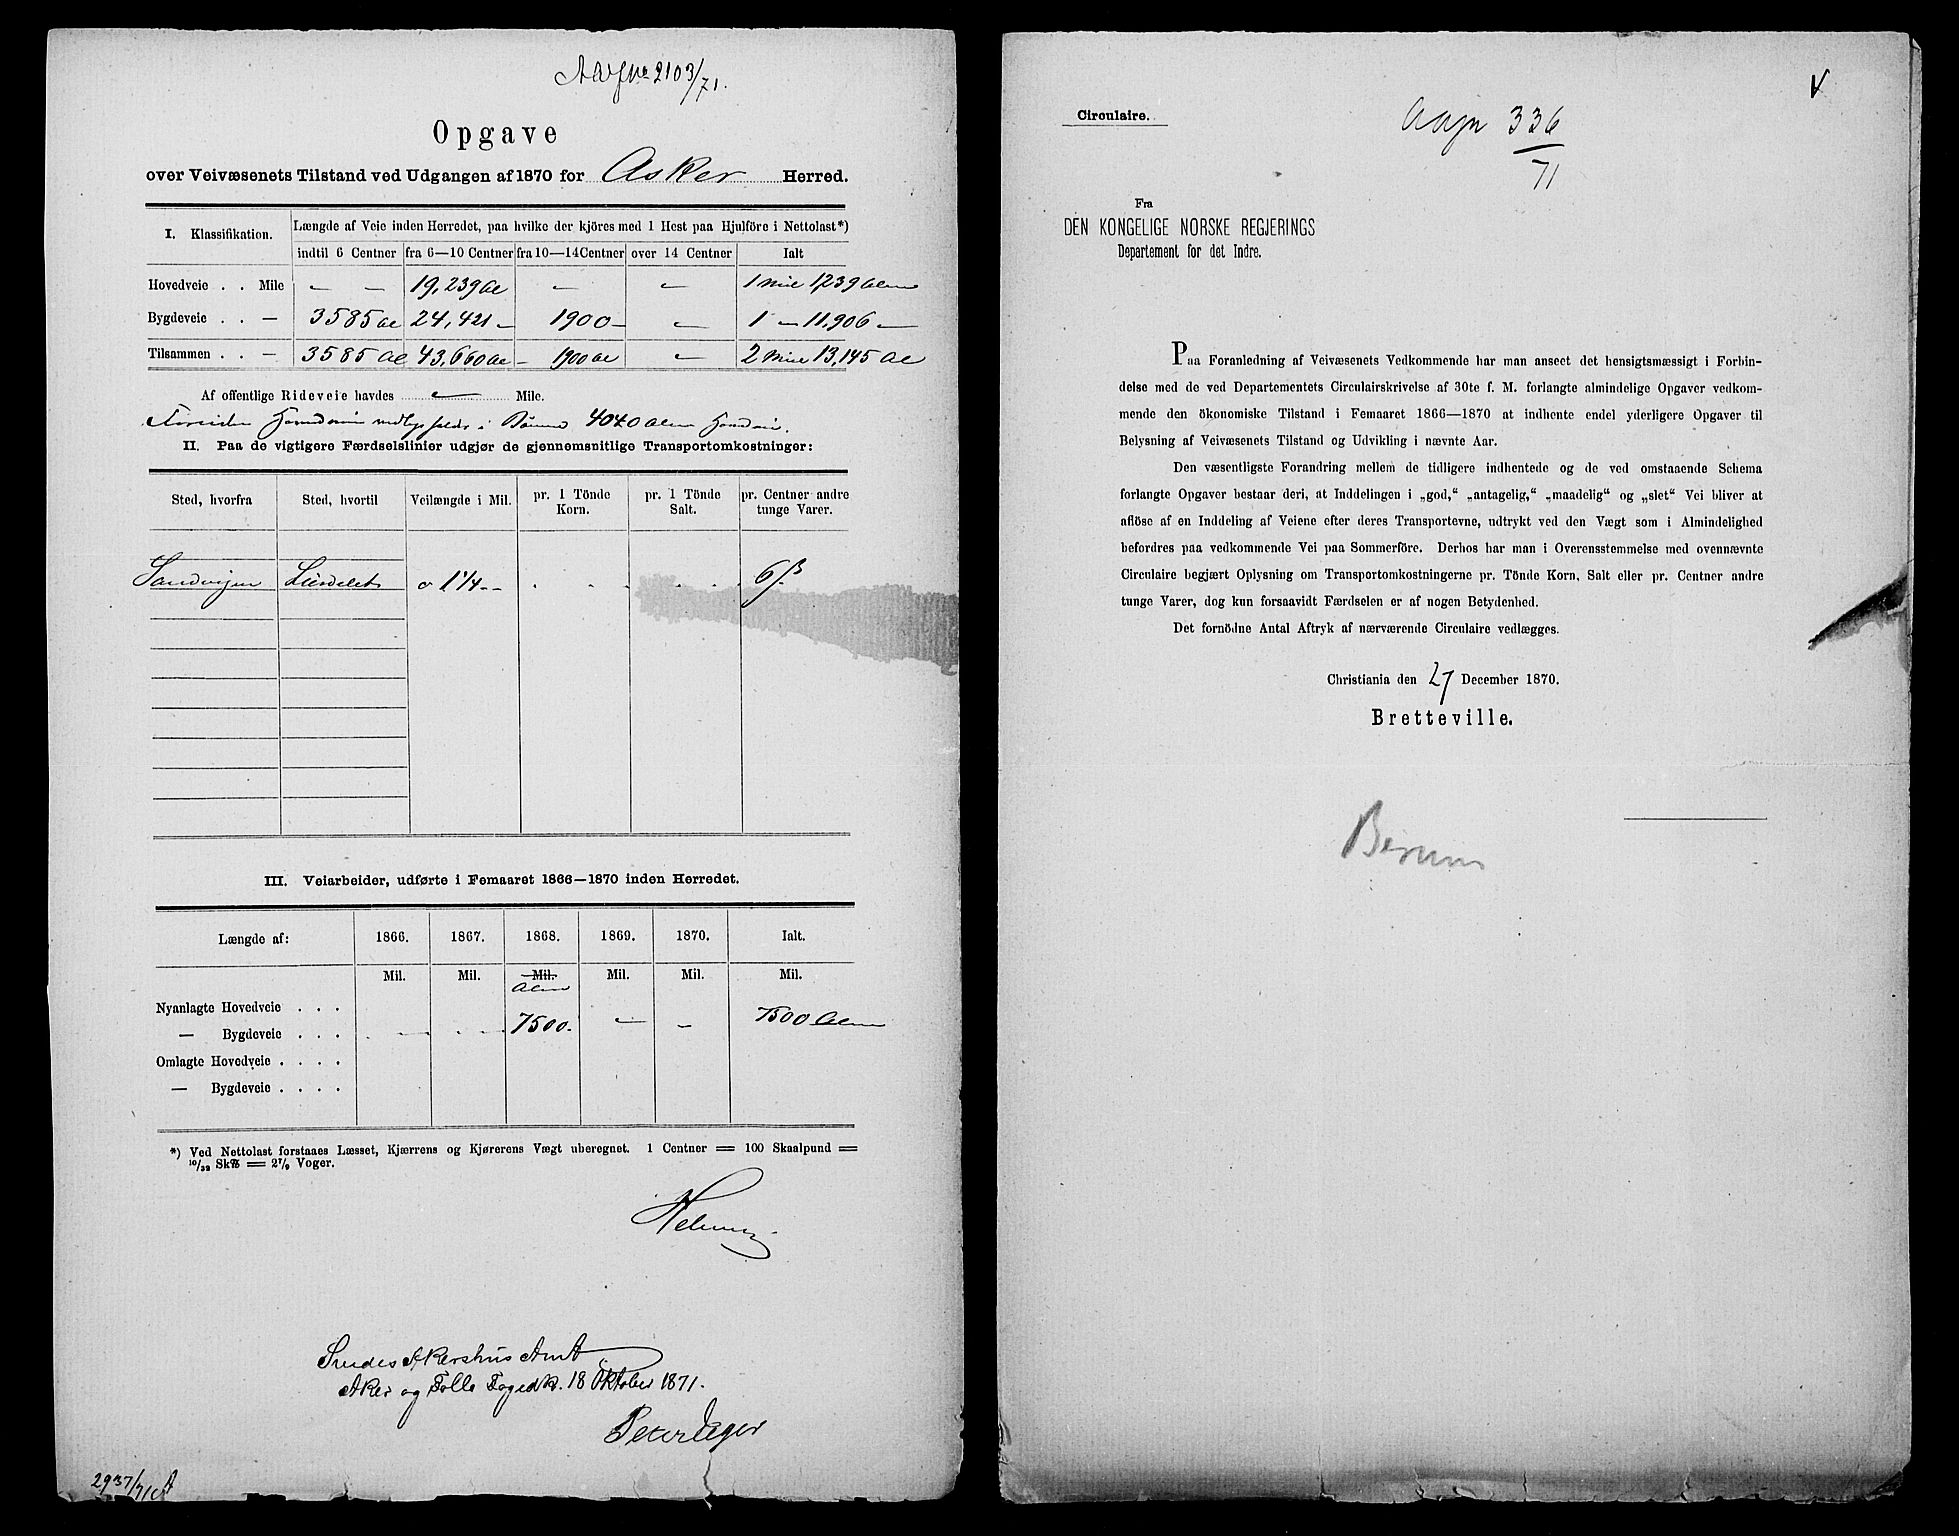 2103/71.
Opgave
over Veivæsenets Tilstand ved Udgangen af 1870 for Asker Herred.
I. Klassifikation.
Længde af Veie inden Herredet, paa hvilke der kjöres med 1 Hest paa Hjulföre i Nettolast*)
indtil 6 Centner fra 6—10 Centner fra 10—14 Centner over 14 Centner Ialt
Hovedveie . . Mile — — 19,239 Al — — 1 Mil 1,239 Alen
Bygdeveie . . — 3585 Al 24,421 — 1900 — — 1 — 11,906 —
Tilsammen . . — 3585 Al 43,660 Al — 1900 Al — 2 Mile 13,145 Al
Af offentlige Rideveie havdes — Mile.
Foruden Hovedveie 4040 Alen
II. Paa de vigtigere Færdselslinier udgjør de gjennemsnitlige Transportomkostninger:
Sted, hvorfra Sted, hvortil Veilængde i Mil. pr. 1 Tönde Korn. pr. 1 Tönde Salt. pr. Centner andre tunge Varer.
Sandvigen 1 1/4 - - 6 ß
III. Veiarbeider, udførte i Femaaret 1866—1870 inden Herredet.
Længde af: 1866. 1867. 1868. 1869. 1870. Ialt.
Mil. Mil. Mil. Mil. Mil. Mil.
Alen
Nyanlagte Hovedveie . . .
— Bygdeveie . . . 7500. — — 7500 Alen
Omlagte Hovedveie . . . .
— Bygdeveie . . . .
*) Ved Nettolast forstaaes Læsset, Kjærrens og Kjørerens Vægt uberegnet. 1 Centner = 100 Skaalpund =
10/32 Sk℔ = 2 7/9 Voger.
Søndre Akershus Amt
Aker og Follo Fogedk. 18 Oktober 1871.
2937/71
Circulaire.
336
71
Fra
DEN KONGELIGE NORSKE REGJERINGS
Departement for det Indre.
Paa Foranledning af Veivæsenets Vedkommende har man anseet det hensigtsmæssigt i Forbin-
delse med de ved Departementets Circulairskrivelse af 30te f. M. forlangte almindelige Opgaver vedkom-
mende den økonomiske Tilstand i Femaaret 1866—1870 at indhente endel yderligere Opgaver til
Belysning af Veivæsenets Tilstand og Udvikling i nævnte Aar.
Den væsentligste Forandring mellem de tidligere indhentede og de ved omstaaende Schema
forlangte Opgaver bestaar deri, at Inddelingen i „god,“ „antagelig,“ „maadelig“ og „slet“ Vei bliver at
aflöse af en Inddeling af Veiene efter deres Transportevne, udtrykt ved den Vægt som i Almindelighed
befordres paa vedkommende Vei paa Sommerföre. Derhos har man i Overensstemmelse med ovennævnte
Circulaire begjært Oplysning om Transportomkostningerne pr. Tönde Korn, Salt eller pr. Centner andre
tunge Varer, dog kun forsaavidt Færdselen er af nogen Betydenhed.
Det fornödne Antal Aftryk af nærværende Circulaire vedlægges.
Christiania den 27 December 1870.
Bretteville.
Berum